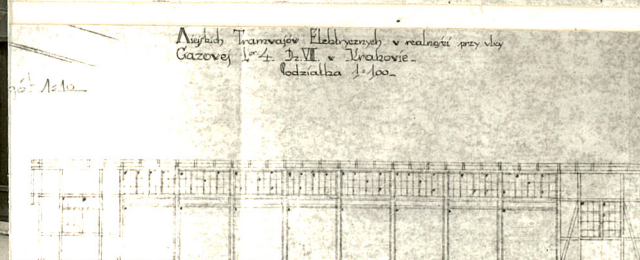 Miejskich Tramwajów Elektrycznych w realności przy ulicy
Gazowej L 4. Dz. VIII. w Krakowie.
Podziałka 1:100
1:10